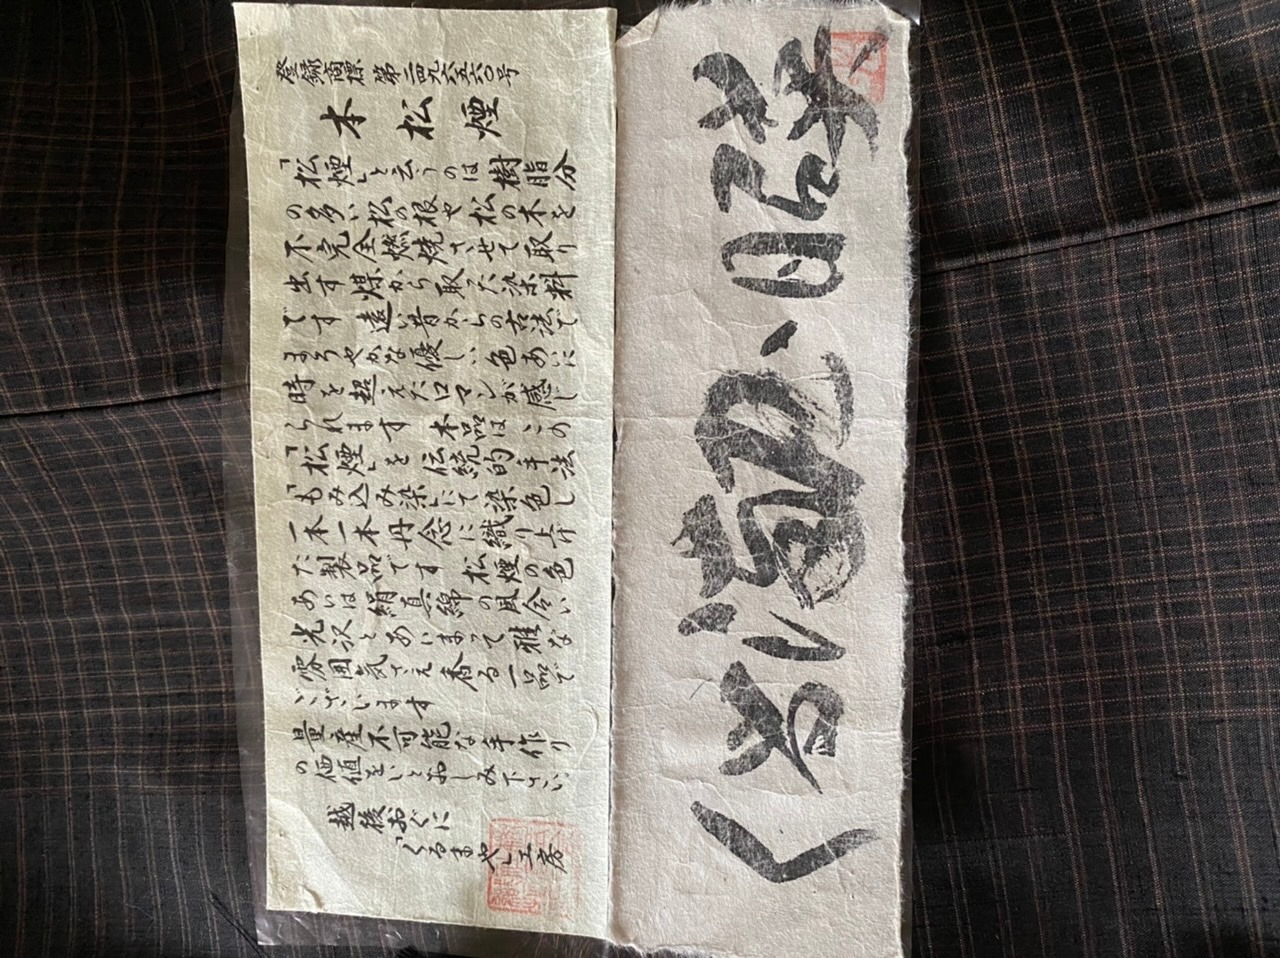 登録商標 第二四九六五六〇号
本松煙
「松煙」と云うのは樹脂分
の多い松の根や松の木を
不完全燃焼させて取り
出す煤から取った染料
です 遠い昔からの古法で
まろやかな優しい色あいに
時を超えたロマンが感じ
られます 本品はこの
「松煙」を伝統的手法
「もみ込み染」にて染色し
一本一本丹念に織り上げ
た製品です 松煙の色
あいは絹真綿の風合い
光沢とあいまって雅な
雰囲気さえ香る一品で
ございます
量産不可能な手作り
の価値をいとおしみ下さい
越後おぐに
「くるまや」工房